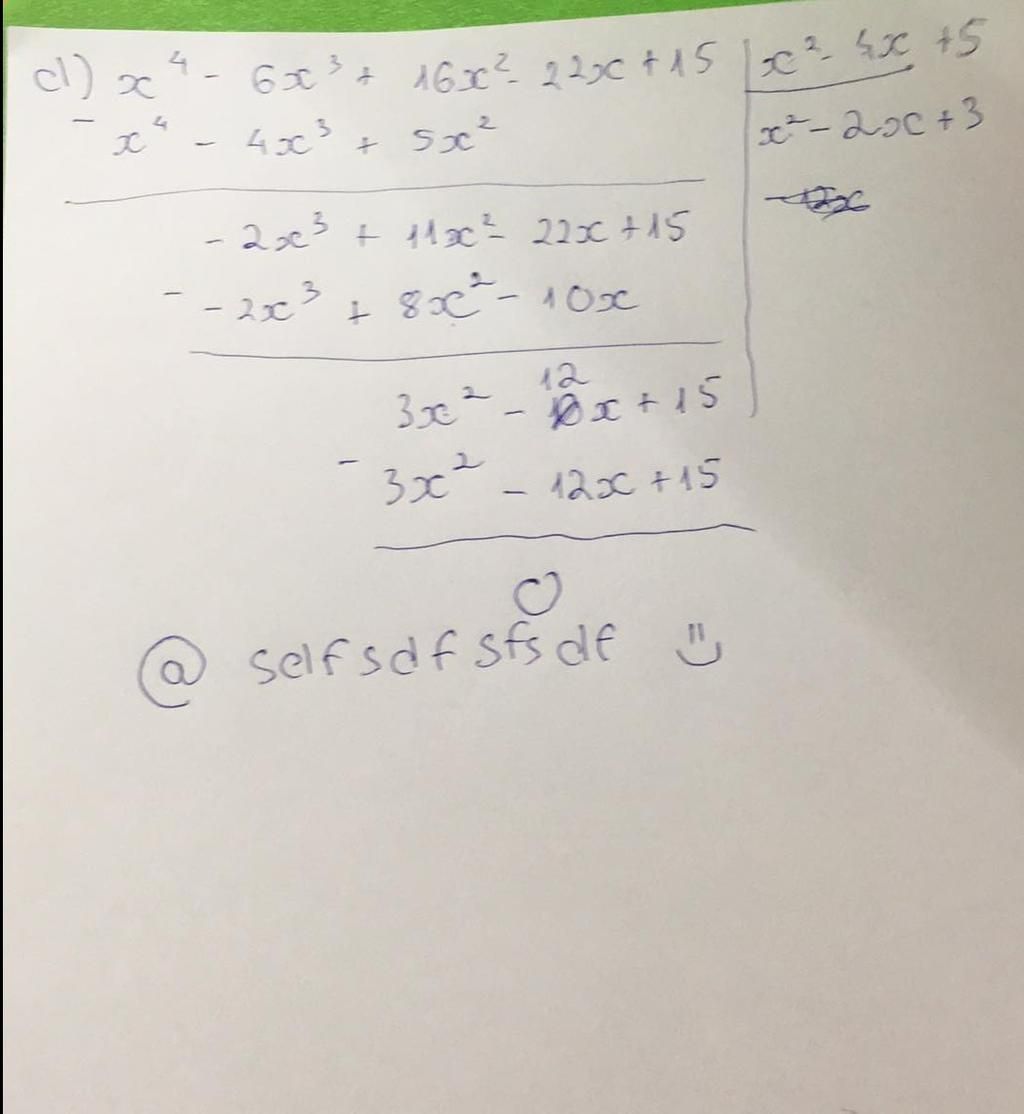 d) x⁴ - 6x³ + 16x² - 22x + 15 | x² - 4x + 5
- x⁴ - 4x³ + 5x² | x² - 2x + 3
- 2x³ + 11x² - 22x + 15
- - 2x³ + 8x² - 10x
3x² - 12x + 15
- 3x² - 12x + 15
0
@ selfsdfsfsdf